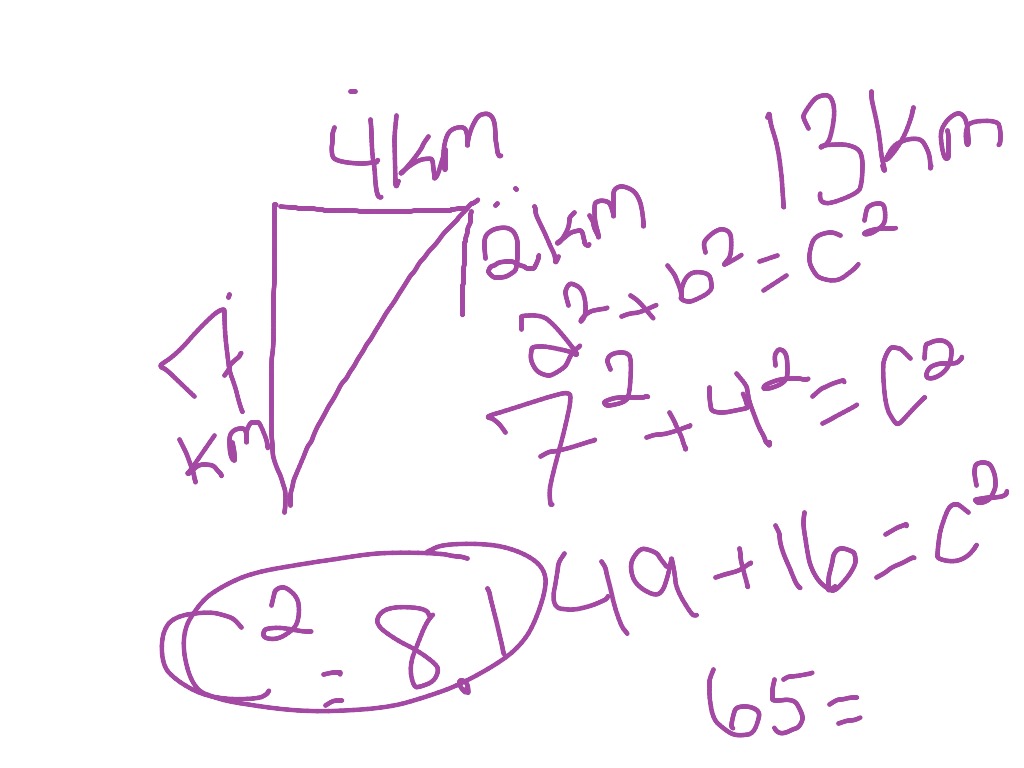 4km
13km
2km
a² + b² = c²
7
km
7² + 4² = c²
49 + 16 = c²
c² = 8.1
65 =